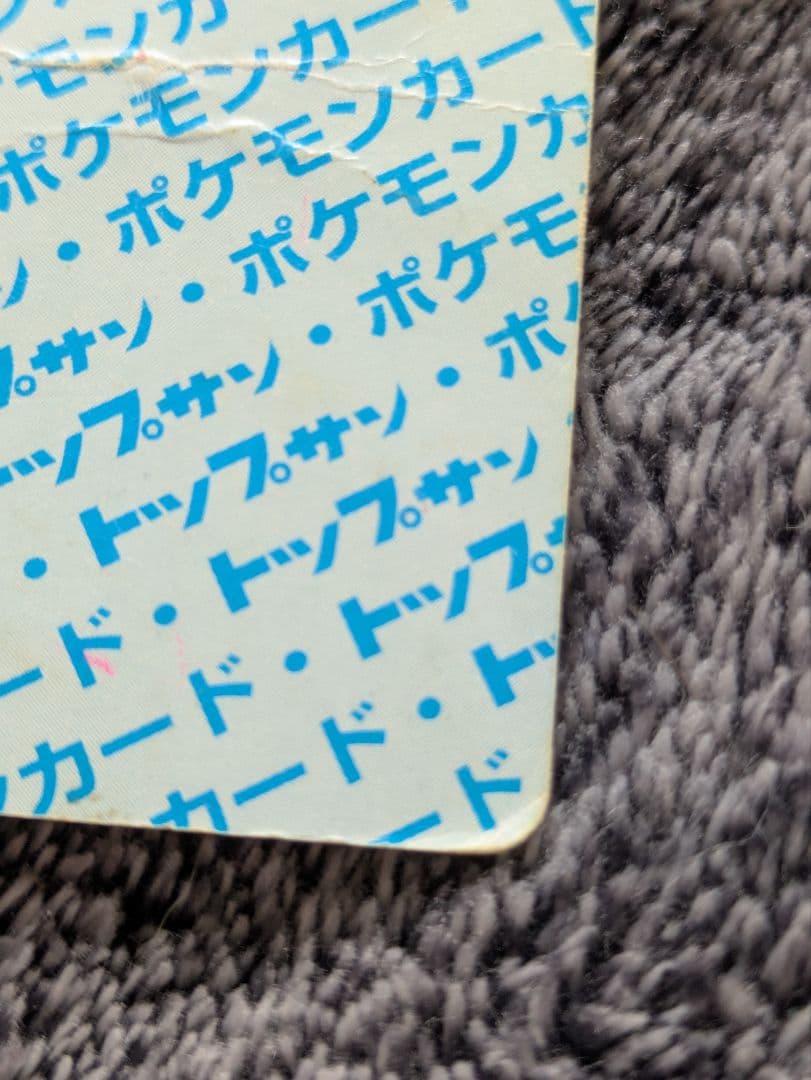 モンカ
ポケモンカー
ン・ポケモンカード
プサン・ポケモンカ
ップサン・ポケモ
・トップサン・ポ
ード・トップサン
ンカード・トップ
カード・ト
ード